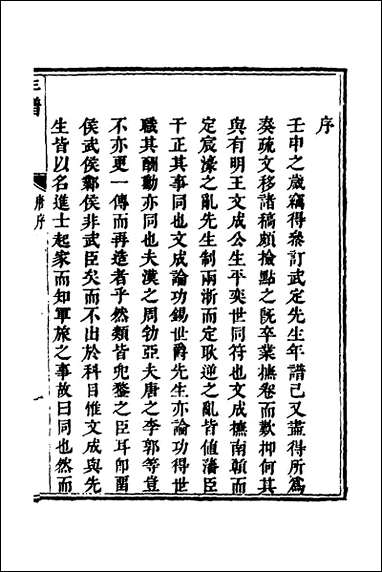 序
壬申之歲竊得叅訂武定先生年譜已又盡得所爲
奏疏文移諸稿願撿點之旣卒業撫卷而歎抑何其
與有明王文成公生平奕世同符也文成撫南贛而
定宸濠之亂先生制兩浙而定耿逆之亂皆値藩臣
干正其事同也文成論功錫世爵先生亦論功得世
職其酬勳亦同也夫漢之周勃亞夫唐之李郭等豈
不亦更一傳而再造者乎然類皆兜鍪之臣耳卽畱
侯武侯鄴侯非武臣矣而不出於科目惟文成與先
生皆以名進士起家而知軍旅之事故曰同也然而
年譜
唐序
一